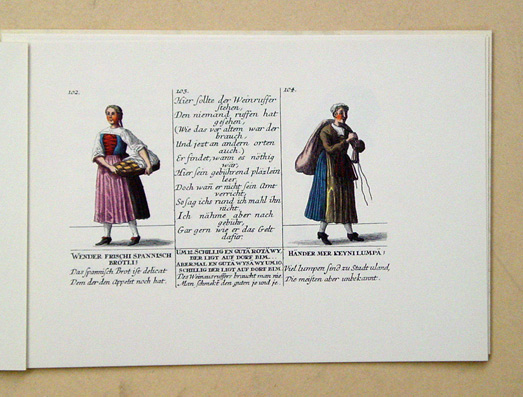 102.
WENDER FRISCHI SPANNISCH
BRÖTLI?
Das spannisch Brot ist delicat
Dem der den Appetit noch hat.
103.
Hier sollte der Weinruffer
stehen,
Den niemand ruffen hat
gesehen,
(Wie das vor altem war der
brauch
Und jezt an andern orten
auch.)
Er findet, wann es nöthig
war,
Hier sein gebührend pläzlein
leer,
Doch wañ er nicht sein Amt
verricht,
So sag ichs rund ich mahl ihn
nicht.
Ich nähme aber nach
gebühr,
Gar gern wie er das Gelt
dafür.
UM 12. SCHILLIG EN GUTA ROTA WY,
DER LIGT AUF DORF BIM.
ABERMAL EN GUTA WYSA WY UM 10.
SCHILLIG DER LIGT AUF DORF BIM.
Des Weinausruffer braucht man nie
Man schmekt den guten je und je.
104.
HÄNDER MER KEYNI LUMPA?
Viel lumpen sind zu Stadt u land,
Die meisten aber unbekannt.